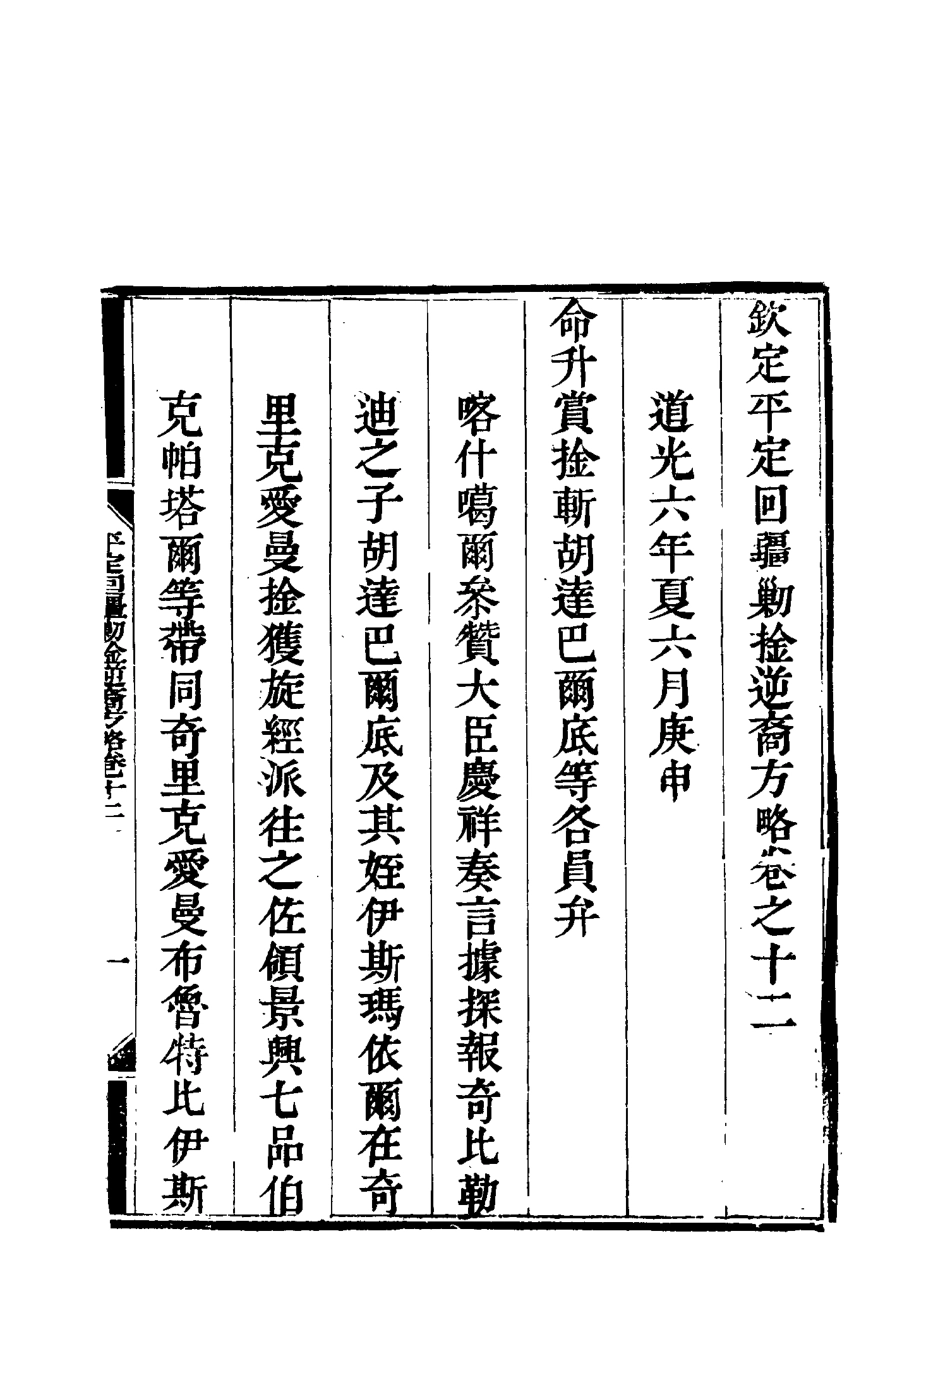 欽定平定回疆勦捦逆裔方略卷之十二
道光六年夏六月庚申
命升賞捦斬胡達巴爾底等各員弁
喀什噶爾叅贊大臣慶祥奏言據探報奇比勒
迪之子胡達巴爾底及其姪伊斯瑪依爾在奇
里克愛曼捦獲旋經派往之佐領景興七品伯
克帕塔爾等帶同奇里克愛曼布魯特比伊斯
平定回疆勦捦逆裔方略卷十二
一